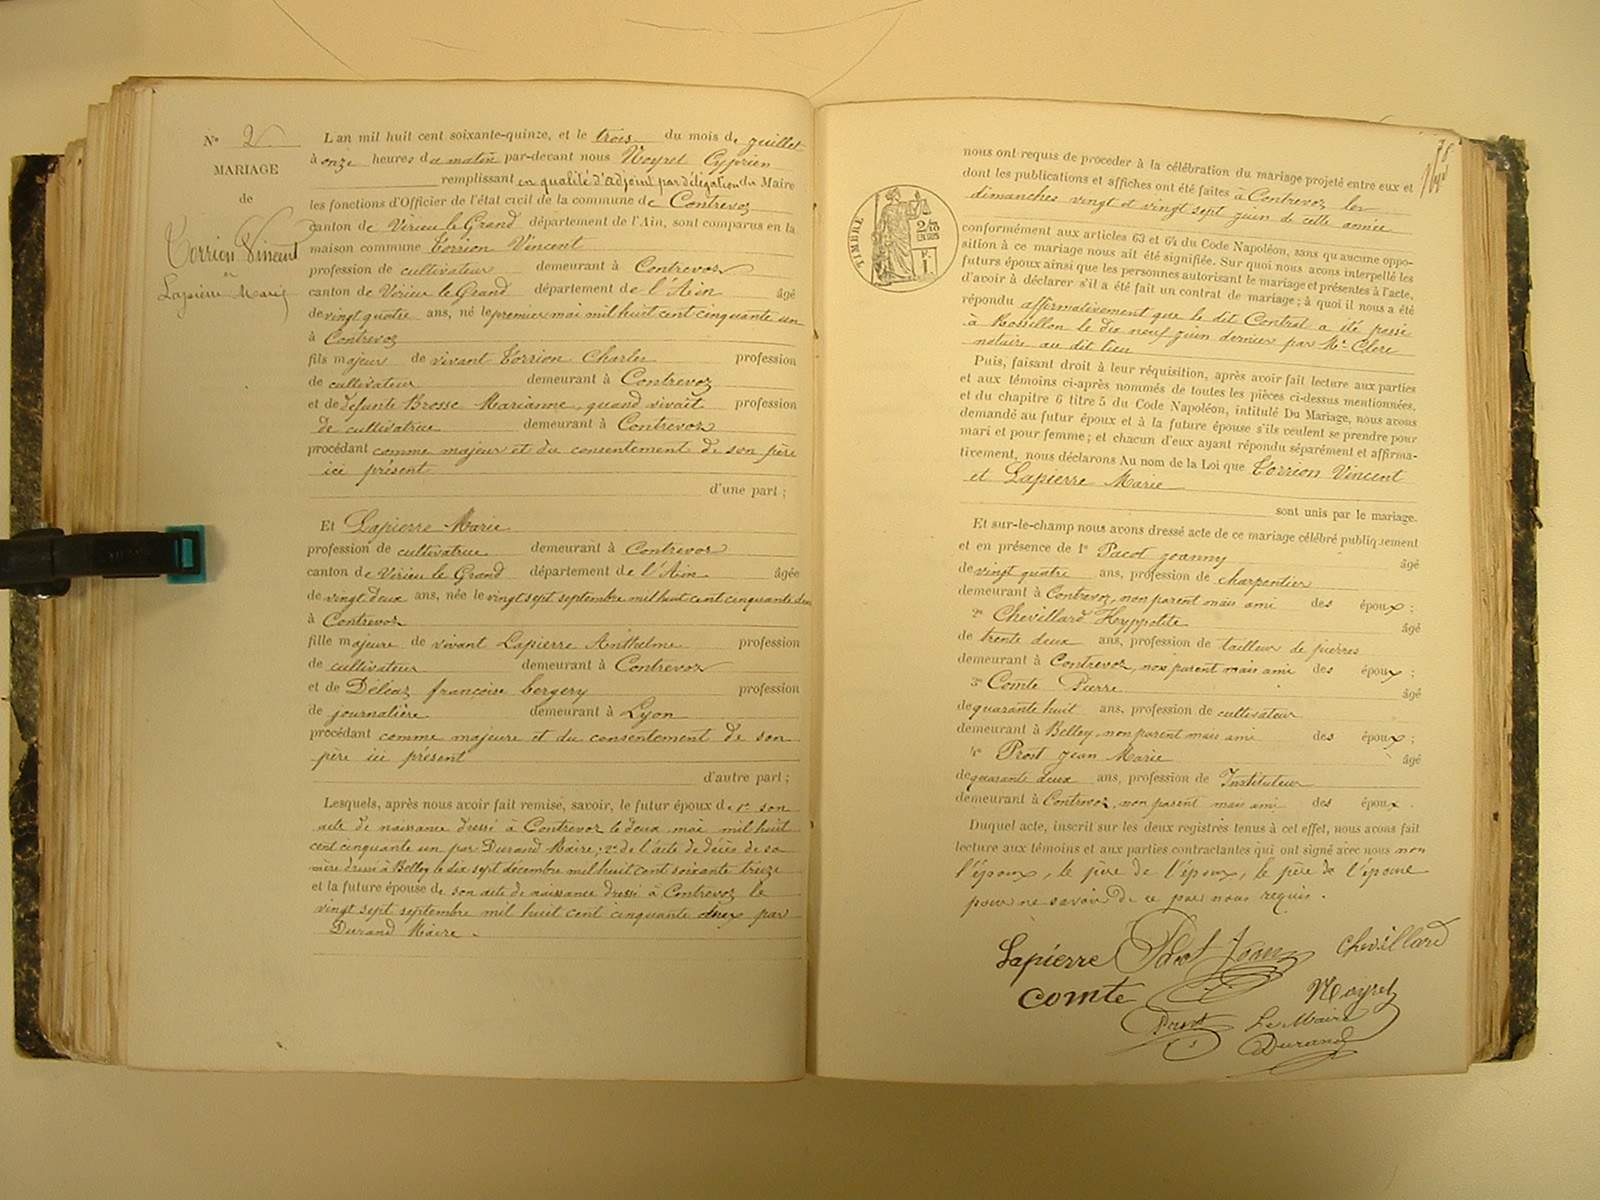 N° 2
MARIAGE
de
Torrion Vincent
et
Lapierre Marie
L'an mil huit cent soixante-quinze, et le trois du mois de juillet
à onze heures du matin par-devant nous Noyret Cyprien
remplissant en qualité d'adjoint par délégation du Maire
les fonctions d'Officier de l'état civil de la commune de Contrevoz
canton de Virieu le Grand département de l'Ain, sont comparus en la
maison commune Torrion Vincent
profession de cultivateur demeurant à Contrevoz
canton de Virieu le Grand département de l'Ain âgé
de vingt quatre ans, né le premier mai mil huit cent cinquante un
à Contrevoz
fils majeur de vivant Torrion Charles profession
de cultivateur demeurant à Contrevoz
et de défunte Brosse Marianne, quand vivait profession
de cultivatrice demeurant à Contrevoz
procédant comme majeur et du consentement de son père
ici présent
d'une part ;
Et Lapierre Marie
profession de cultivatrice demeurant à Contrevoz
canton de Virieu le Grand département de l'Ain âgée
de vingt deux ans, née le vingt sept septembre mil huit cent cinquante deux
à Contrevoz
fille majeure de vivant Lapierre Anthelme profession
de cultivateur demeurant à Contrevoz
et de Déléaz françoise bergery profession
de journalière demeurant à Lyon
procédant comme majeure et du consentement de son
père ici présent
d'autre part ;
Lesquels, après nous avoir fait remise, savoir, le futur époux de 1° son
acte de naissance dressé à Contrevoz le deux mai mil huit
cent cinquante un par Durand Maire ; 2° de l'acte de décès de sa
mère dressé à Belley le dix sept décembre mil huit cent soixante treize
et la future épouse de son acte de naissance dressé à Contrevoz le
vingt sept septembre mil huit cent cinquante deux par
Durand Maire.
78
TIMBRE
nous ont requis de procéder à la célébration du mariage projeté entre eux et
dont les publications et affiches ont été faites à Contrevoz les
dimanches vingt et vingt sept juin de cette année
conformément aux articles 63 et 64 du Code Napoléon, sans qu'aucune oppo-
sition à ce mariage nous ait été signifiée. Sur quoi nous avons interpellé les
futurs époux ainsi que les personnes autorisant le mariage et présentes à l'acte,
d'avoir à déclarer s'il a été fait un contrat de mariage ; à quoi il nous a été
répondu affirmativement que le dit Contrat a été passé
à Rossillon le dix neuf juin dernier par Mr Clerc
notaire au dit lieu
Puis, faisant droit à leur réquisition, après avoir fait lecture aux parties
et aux témoins ci-après nommés de toutes les pièces ci-dessus mentionnées,
et du chapitre 6 titre 5 du Code Napoléon, intitulé Du Mariage, nous avons
demandé au futur époux et à la future épouse s'ils veulent se prendre pour
mari et pour femme ; et chacun d'eux ayant répondu séparément et affirma-
tivement, nous déclarons Au nom de la Loi que Torrion Vincent
et Lapierre Marie
sont unis par le mariage.
Et sur-le-champ nous avons dressé acte de ce mariage célébré publiquement
et en présence de 1° Pacot Joanny âgé
de vingt quatre ans, profession de charpentier
demeurant à Contrevoz, non parent mais ami des époux ;
2° Chevillard Hyppolite âgé
de trente deux ans, profession de tailleur de pierres
demeurant à Contrevoz, non parent mais ami des époux ;
3° Comte Pierre âgé
de quarante huit ans, profession de cultivateur
demeurant à Belley, non parent mais ami des époux ;
4° Prost Jean Marie âgé
de quarante deux ans, profession de Instituteur
demeurant à Contrevoz, non parent mais ami des époux.
Duquel acte, inscrit sur les deux registres tenus à cet effet, nous avons fait
lecture aux témoins et aux parties contractantes qui ont signé avec nous non
l'époux, le père de l'époux, le père de l'épouse
pour ne savoir de ce par nous requis.
Lapierre Chevillard
Comte Noyret
Le Maire
Durand